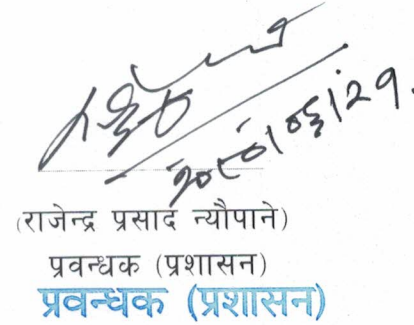 २०८०।०६।२१.
(राजेन्द्र प्रसाद न्यौपाने)
प्रवन्धक (प्रशासन)
प्रवन्धक (प्रशासन)